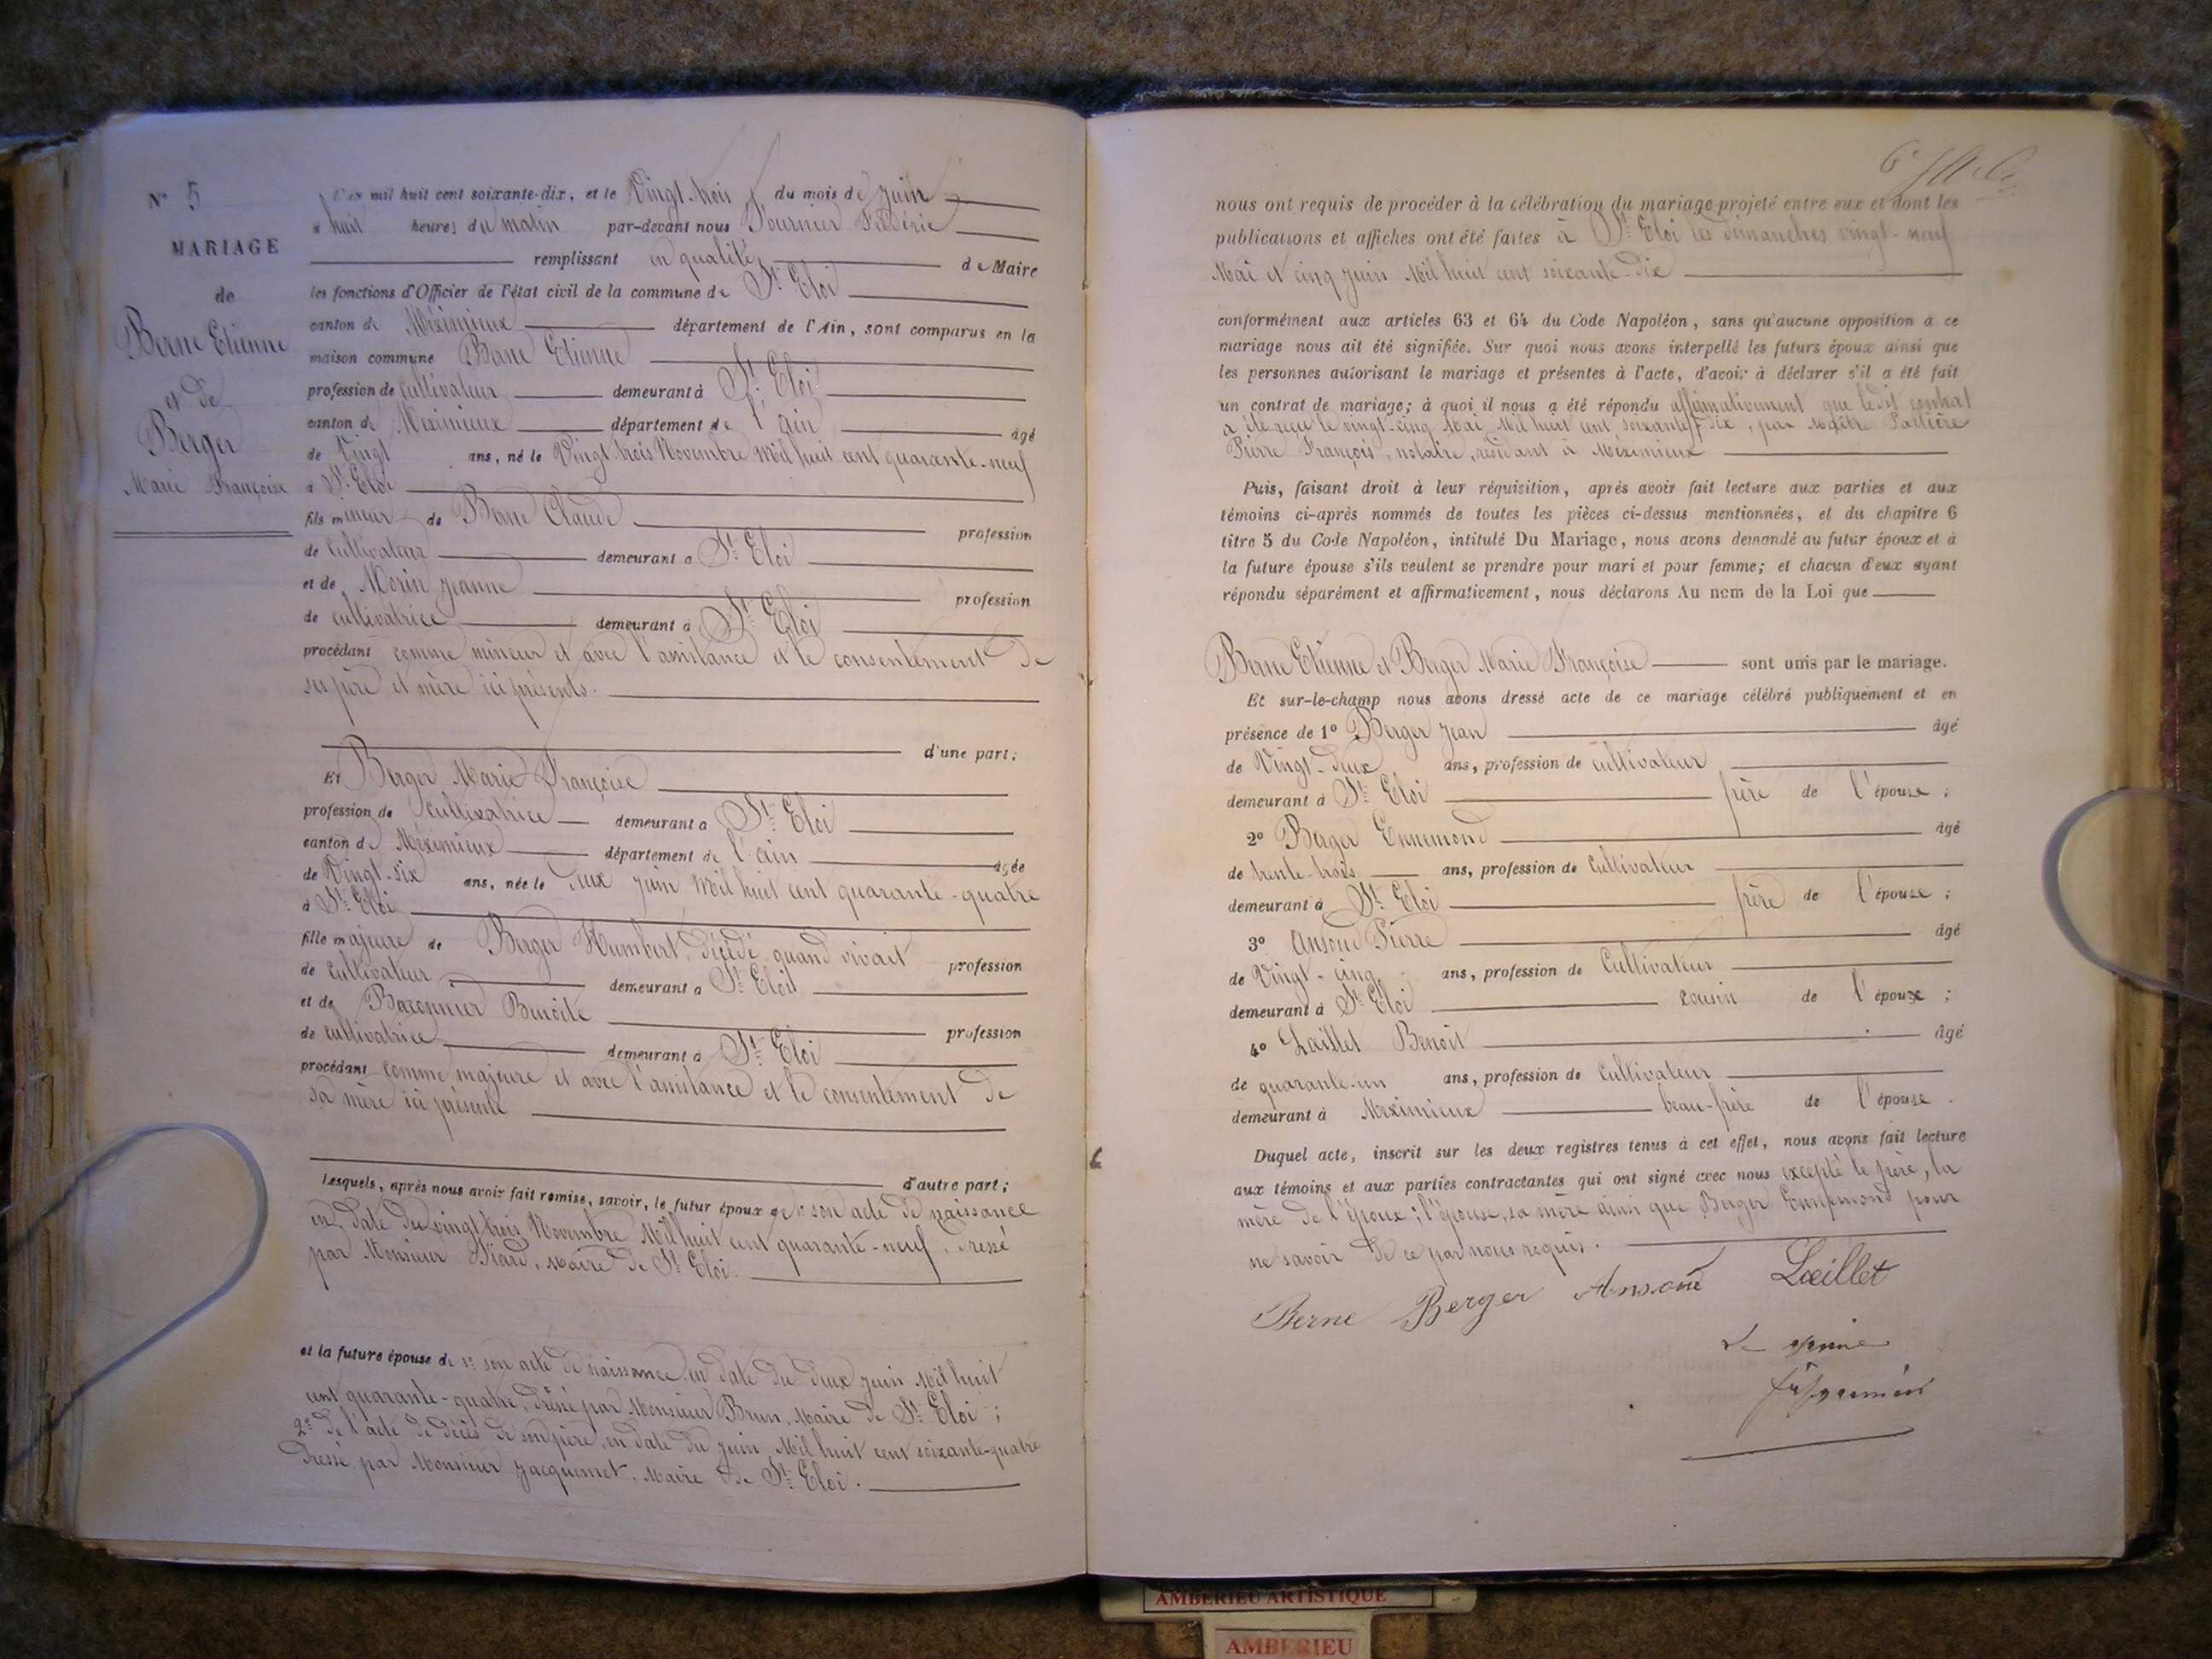 N° 5
MARIAGE
de
Berne Etienne
et de
Berger
Marie Françoise
L'an mil huit cent soixante-dix, et le Vingt-trois du mois de Juin
à huit heures du matin par-devant nous Fournier Frédéric
remplissant en qualité de Maire
les fonctions d'Officier de l'état civil de la commune de St. Eloi
canton de Méximieux département de l'Ain, sont comparus en la
maison commune Berne Etienne
profession de cultivateur demeurant à St. Eloi
canton de Méximieux département de l'ain âgé
de Vingt ans, né le Vingt-trois Novembre Mil huit cent quarante-neuf
à St. Eloi
fils mineur de Berne Claude profession
de cultivateur demeurant à St. Eloi
et de Morin Jeanne profession
de cultivatrice demeurant à St. Eloi
procédant comme mineur et avec l'assistance et le consentement de
ses père et mère ici présents.
d'une part;
Et Berger Marie Françoise
profession de cultivatrice demeurant à St. Eloi
canton de Méximieux département de l'ain âgée
de Vingt-six ans, née le deux Juin Mil huit cent quarante-quatre
à St. Eloi
fille majeure de Berger Humbert, décédé, quand vivait profession
de cultivateur demeurant à St. Eloi
et de Benoîte profession
de cultivatrice demeurant à St. Eloi
procédant comme majeure et avec l'assistance et le consentement de
sa mère ici présente
d'autre part;
Lesquels, après nous avoir fait remise, savoir, le futur époux de 1° son acte de naissance
en date du vingt-trois Novembre Mil huit cent quarante-neuf, dressé
par Monsieur Maire de St. Eloi.
et la future épouse de 1° son acte de naissance en date du deux Juin Mil huit
cent quarante-quatre, dressé par Monsieur Brun, Maire de St. Eloi;
2° de l'acte de décès de son père, en date du Juin Mil huit cent soixante-quatre
dressé par Monsieur Jacquemet, Maire de St. Eloi.
nous ont requis de procéder à la célébration du mariage projeté entre eux et dont les
publications et affiches ont été faites à St. Eloi les dimanches vingt-neuf
Mai et cinq Juin Mil huit cent soixante-dix
conformément aux articles 63 et 64 du Code Napoléon, sans qu'aucune opposition à ce
mariage nous ait été signifiée. Sur quoi nous avons interpellé les futurs époux ainsi que
les personnes autorisant le mariage et présentes à l'acte, d'avoir à déclarer s'il a été fait
un contrat de mariage; à quoi il nous a été répondu affirmativement que ledit contrat
a été reçu le vingt-cinq Mai Mil huit cent soixante-dix, par Maître
Pierre François, notaire, résidant à Méximieux
Puis, faisant droit à leur réquisition, après avoir fait lecture aux parties et aux
témoins ci-après nommés de toutes les pièces ci-dessus mentionnées, et du chapitre 6
titre 5 du Code Napoléon, intitulé Du Mariage, nous avons demandé au futur époux et à
la future épouse s'ils veulent se prendre pour mari et pour femme; et chacun d'eux ayant
répondu séparément et affirmativement, nous déclarons Au nom de la Loi que
Berne Etienne et Berger Marie Françoise sont unis par le mariage.
Et sur-le-champ nous avons dressé acte de ce mariage célébré publiquement et en
présence de 1° Berger Jean âgé
de Vingt-deux ans, profession de cultivateur
demeurant à St. Eloi frère de l'épouse;
2° Berger Ennemond âgé
de trente-trois ans, profession de cultivateur
demeurant à St. Eloi frère de l'épouse;
3° Ansoud Pierre âgé
de Vingt-cinq ans, profession de Cultivateur
demeurant à St. Eloi cousin de l'époux;
4° Laillet Benoît âgé
de quarante-un ans, profession de Cultivateur
demeurant à Méximieux beau-frère de l'épouse.
Duquel acte, inscrit sur les deux registres tenus à cet effet, nous avons fait lecture
aux témoins et aux parties contractantes qui ont signé avec nous excepté le père, la
mère de l'époux; l'épouse, sa mère ainsi que Berger Ennemond pour
ne savoir de ce par nous requis.
Berne Berger Laillet
Le maire
AMBERIEU ARTISTIQUE
AMBERIEU